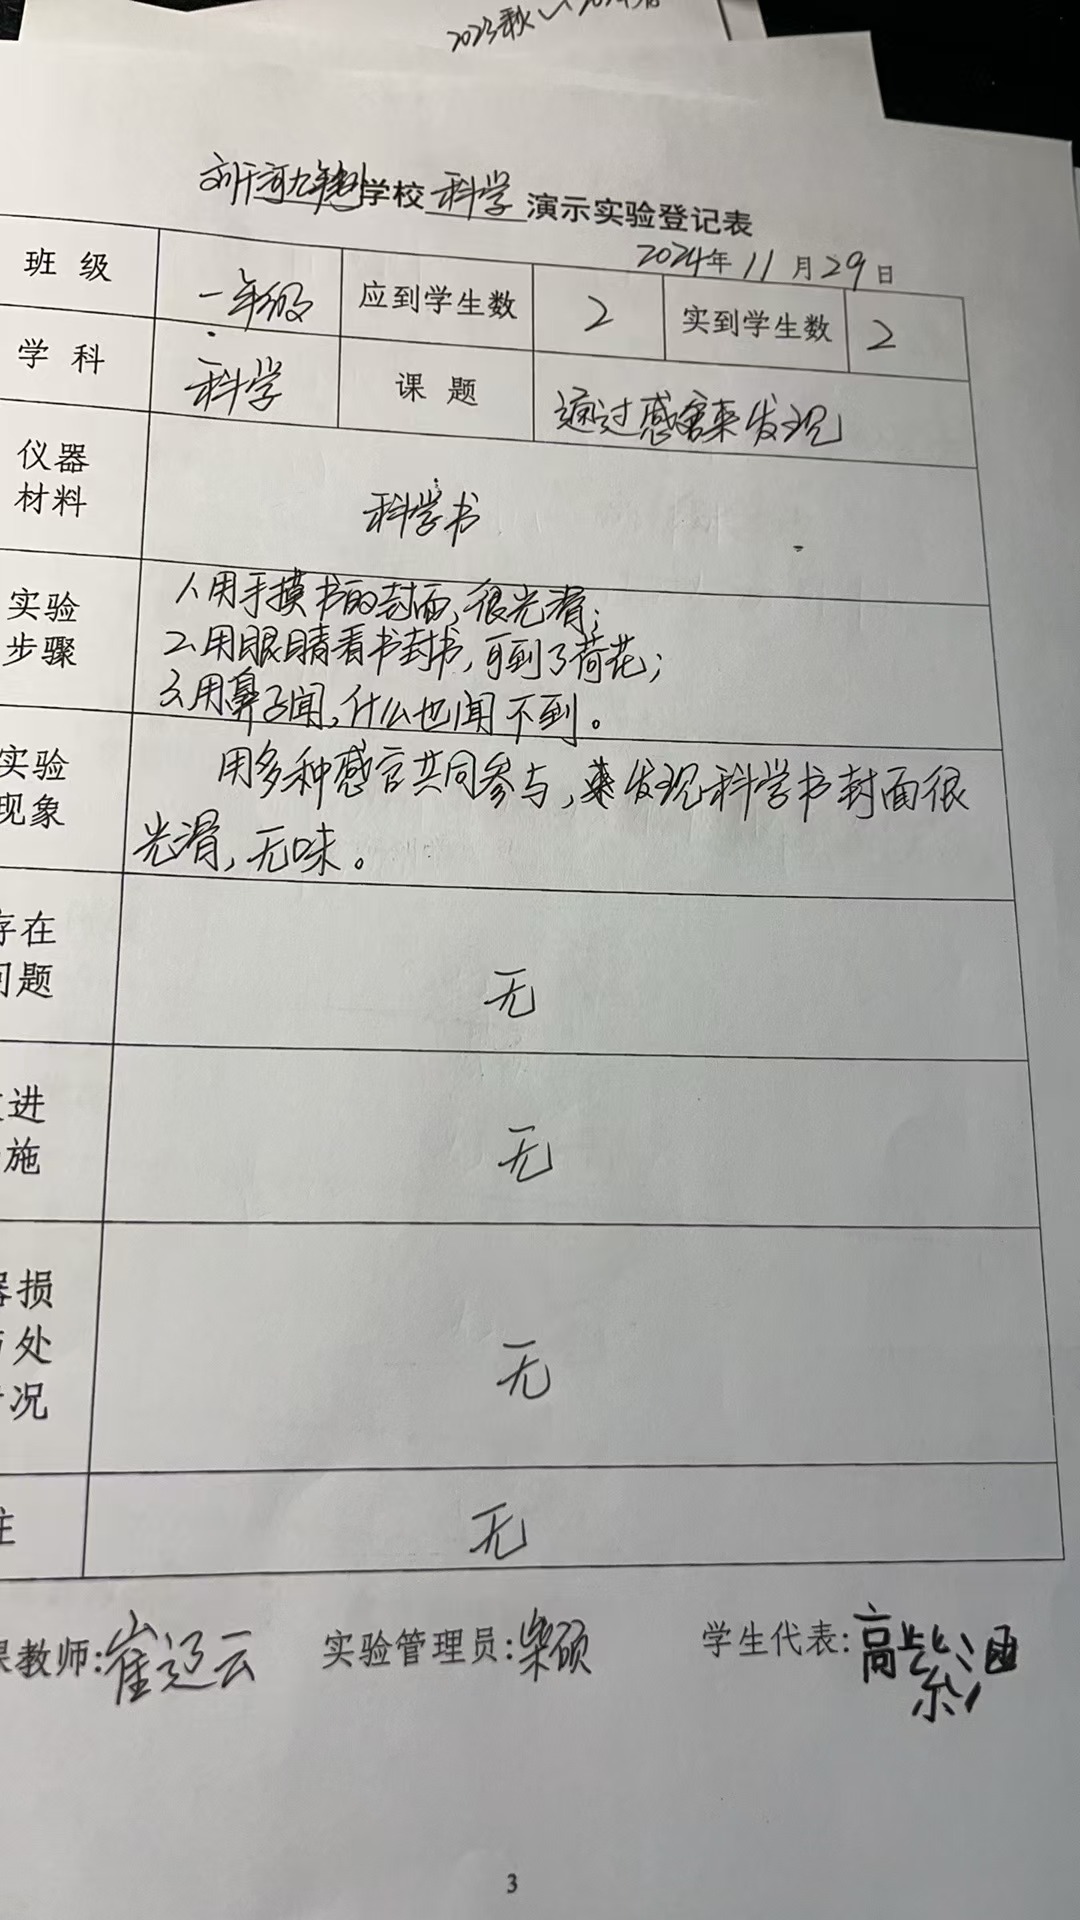 2023秋
学校 科学 演示实验登记表
2024年 11月29日
班 级 一年级 应到学生数 2 实到学生数 2
学 科 科学 课 题 通过感官来发现
仪器
材料
科学书
实验
步骤
1.用手摸书的封面,很光滑;
2.用眼睛看书封书,可到了荷花;
3.用鼻子闻,什么也闻不到。
实验
现象
用多种感官共同参与,来发现科学书封面很
光滑,无味。
存在
问题
无
进
施
无
损
处
况
无
注
无
课教师:崔辽云 实验管理员:柴硕 学生代表:高紫涵
3